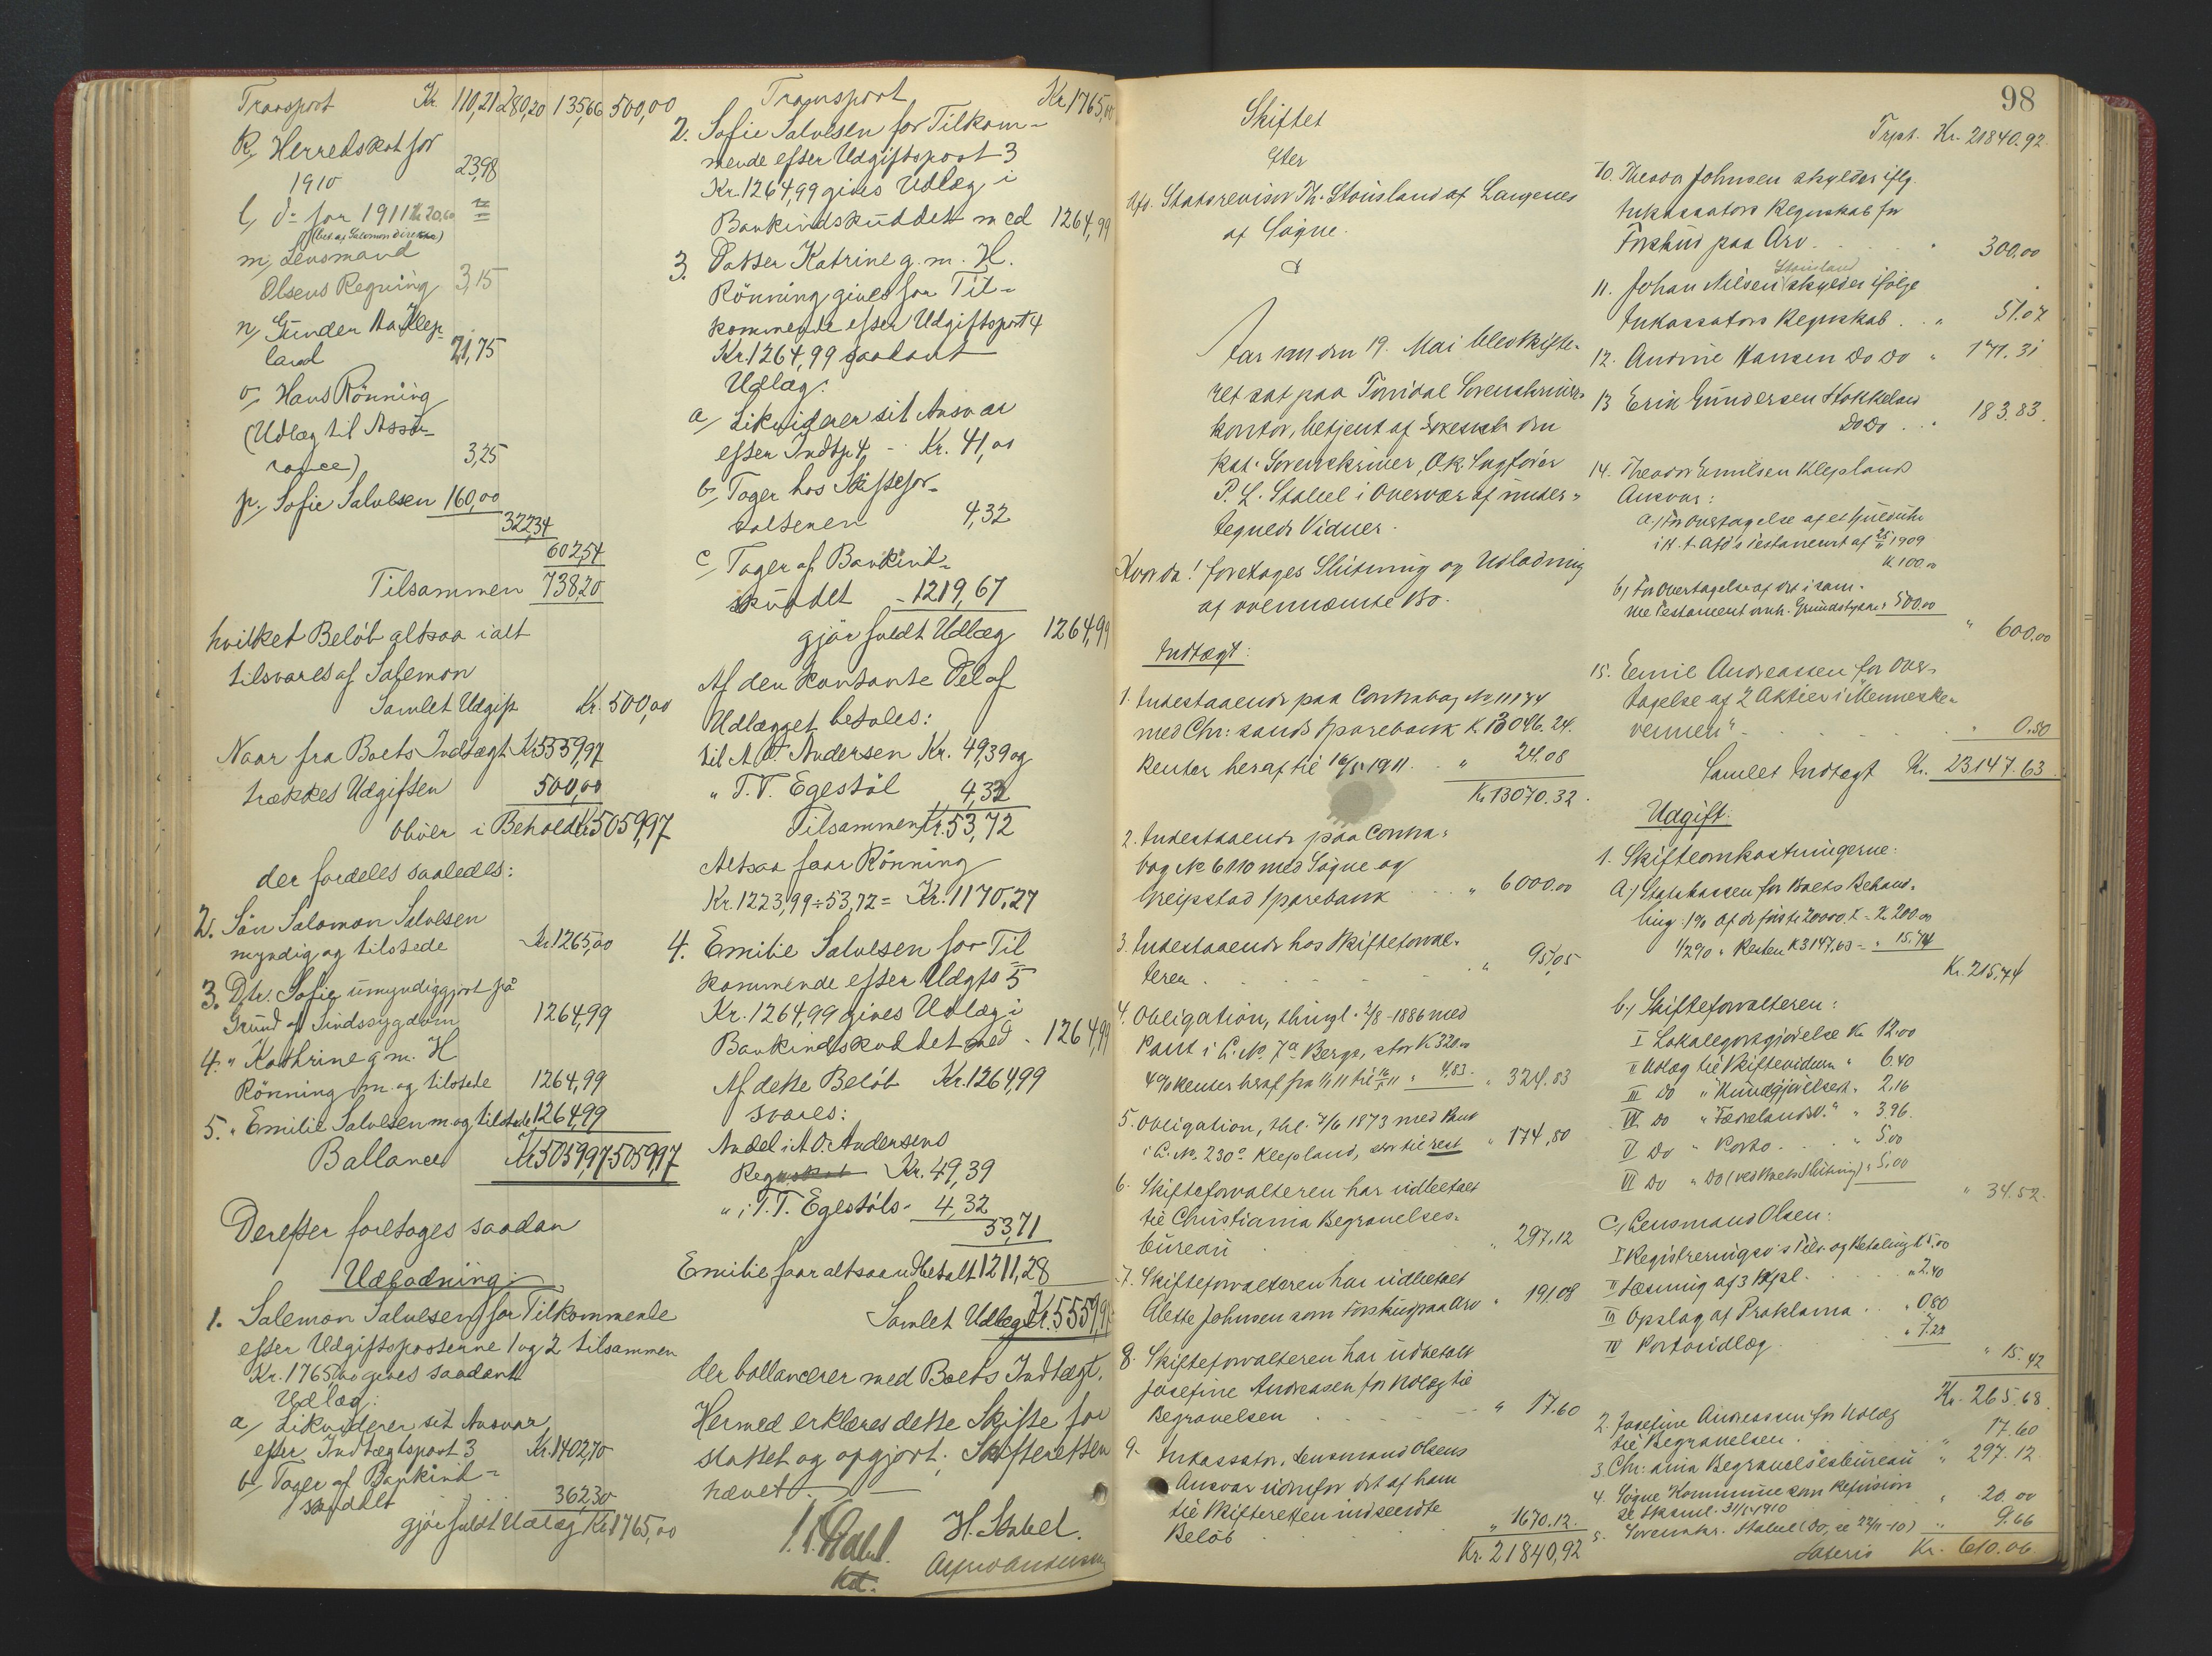 Transport Kr. 110,21 280,20 135,66 500,00
k, Herredskat for
1910 23,98
l, do for 1911 Kr 20,60 "
(bet. af Salomon direkte)
m, Lensmand
Olsens Regning 3,15
n, Gunder A. Klep-
land 21,75
o, Hans Rönning
(Udlæg til Assu-
rance) 3,25
p, Sofie Salvesen 160,00
322,34
602,54
Tilsammen 738,20
hvilket Belöb altsaa i alt
tilsvares af Salemon
Samlet Udgift Kr. 500,00
Naar fra Boets Indtægt Kr 5559,97
trækkes Udgiften 500,00
bliver i Behold Kr 5059,97
der fordeles saaledes:
2. Sön Salomon Salvesen
myndig og tilstede Kr 1265,00
3. Dtr. Sofie umyndiggjort på
Grund af Sindssygdom 1264,99
4. " Kathrine g m. H
Rönning m. og tilstede 1264,99
5. " Emilie Salvesen m. og tilstede 1264,99
Ballance Kr 5059,97 5059,97
Derefter foretages saadan
Udlodning:
1. Salemon Salvesen for Tilkommende
efter Udgiftsposterne 1 og 2 tilsammen
Kr. 1765,00 gives saadant
Udlæg:
a, Likviderer sit Ansvar
efter Indtægtspost 3 Kr. 1402,70
b, Tager af Bankind-
skuddet 362,30
gjör fuldt Udlæg Kr 1765,00
Transport Kr 1765,00
2. Sofie Salvesen for Tilkom-
mende efter Udgiftspost 3
Kr. 1264,99 gives Udlæg i
Bankindskuddet med 1264,99
3. Datter Katrine g. m. H.
Rönning gives for Til-
kommende efter Udgiftspost 4
Kr. 1264,99 saadant
Udlæg:
a, Likviderer sit Ansvar
efter Indtp. 4, - Kr. 41,00
b, Tager hos Skiftefor-
valteren 4,32
c, Tager af Bankind-
skuddet - 1219,67
gjör fuldt Udlæg 1264,99
Af den kontante Del af
Udlægget betales:
til A. O. Andersen Kr. 49,39 og
" T. T. Egestöl 4,33
Tilsammen Kr. 53,72
Altsaa faar Rönning
Kr. 1223,99 ÷ 53,72 = Kr. 1170,27
4. Emilie Salvesen for Til
kommende efter Udgfts 5
Kr. 1264,99 gives Udlæg i
Bankindskuddet med - 1264,99
Af dette Belöb Kr. 1264,99
svares:
Andel i A. O. Andersens
Regnskab Kr. 49,39
" i T. T. Egestöls - 4,32
53,71
Emilie faar altsaa udbetalt 1211,28
Samlet Udlæg Kr. 5559,97
der ballancerer med Boets Indtægt.
Hermed erklæres dette Skifte for
sluttet og opgjort. Skifteretten
hævet.
H. Stabel.
Kst. Alfred Andersen
98
Skiftet
Efter
Afd. Statsrevisor Th. Stousland af Langenes
af Sögne.
Aar 1911 den 19. Mai blev Skifte-
ret sat paa Torridal Sorenskriver-
kontor, betjent af den
kst. Sorenskriver, O.R. Sagförer
P. L. Stabel i Overvær af under-
tegnede Vidner.
Hvorda! foretages Slutning og Udlodning
af ovennævnte Bo.
Indtægt:
1. Indestaaende paa Contrabog No 11174
med Chr: sands Sparebank K. 13046.24.
Renter heraf til 16/5 1911. . " 24.08
Kr 13070.32.
2. Indestaaende paa Contra-
bog No 6110 med Sögne og
Greipstad Sparebank . . " 6000.00
3. Indestaaende hos Skifteforval-
teren . . . " 95,05
4. Obligation, thingl. 2/8-1886 med
Pant i G. No. 7a Berge, stor K 320.00
4% Renter heraf fra 1/1 11 til 16/5 11 " 4,83. " 324.83
5. Obligation, thl. 7/6 1873 med Pant
i G. No. 230c Klepland, stor til rest " 174,50
6. Skifteforvalteren har udbetalt
til Christiania Begravelses-
bureau . . " 297.12
7. Skifteforvalteren har udbetalt
Alette Johnsen som Forskud paa Arv " 191.08
8. Skifteforvalteren har udbetalt
Josefine Andreasen for Udlæg til
Begravelsen . . . " 17.60
9. Inkassator, Lensmand Olsens
Ansvar udenfor det af ham
til Skifteretten indsendte
Belöb " 1670.12.
Kr. 21840,92
Trpt. Kr. 21840.92.
10. Theodor Johnsen skylder iflg.
Inkassators Regnskab for
Forskud paa Arv . . " 300.00
11. Johan Nilsen Stousland skylder ifölge
Inkassators Regnskab . . " 51.07
12. Andrine Hansen Do Do " 171.31
13 Erik Gundersen Stokkeland
Do Do . . " 183.83.
14. Theodor Emilsen Klepland
Ansvar:
a) For Overtagelse af et Gulduhr
i H. t. Afd's Testament af 25/11 1909
K 100.00
b) For Overtagelse af det i sam-
me Testament omh. Grundstykke " 500.00
" 600.00
15. Emil Andreassen for Over-
tagelse af 2 Aktier i "Menneske-
vennen" . . . " 0.50
Samlet Indtægt Kr. 23147.63.
Udgift:
1. Skifteomkostningerne:
a.) Statskassen for Boets Behand-
ling: 1% af de förste 20000 K = K 200.00
1/2% " Resten K 3147.63 = " 15.74
Kr. 215.74
b.) Skifteforvalteren:
I Lokalegodtgjörelse Kr. 12.00
II Udlæg til Skiftevidner " 6.40
III Do " Kundgjörelser " 2.16
IV Do " Fædrelandsv. " " 3.96.
V Do " Porto . . " 5.00
VI Do " Do (ved Boets Slutning) " 5.00
" 34.52.
c.) Lensmand Olsen:
I Registreringsv's Tilv. og Betaling K 5.00
II Læsning af 3 Expl. . . " 2.40
III Opslag af Proklama . . " 0.80
IV Portoudlæg . . " 7.22
" 15.42
Kr. 265.68.
2. Josefine Andreassen for Udlæg
til Begravelsen . . " 17.60
3. Chr: ania Begravelsesbureau " 297.12
4. Sögne Kommune som Refusion
se Sksml. 31/5-1910 " 20.00
5. Sorenskr. Stabel (Do, se 22/11-10) " 9.66
Lateris Kr. 610.06